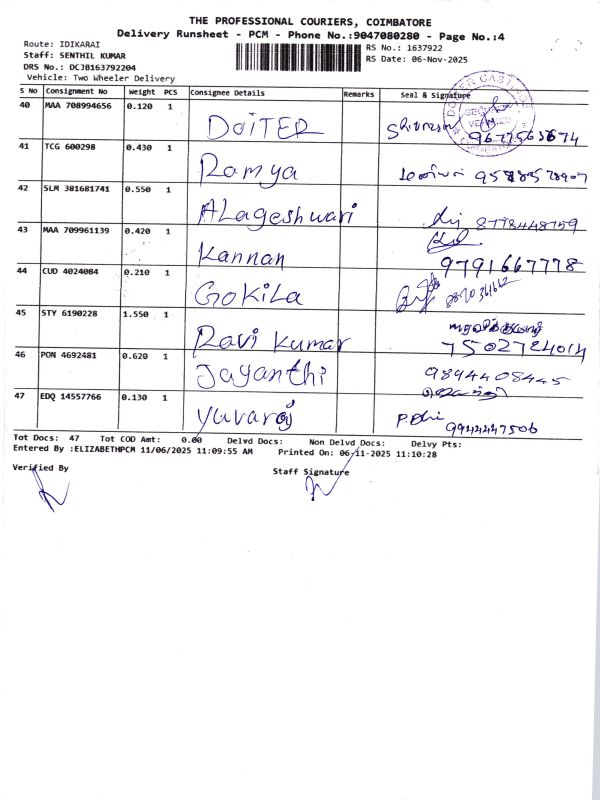 THE PROFESSIONAL COURIERS, COIMBATORE
Delivery Runsheet - PCM - Phone No.:9047080280 - Page No.:4
Route: IDIKARAI
RS No.: 1637922
Staff: SENTHIL KUMAR
RS Date: 06-Nov-2025
DRS No.: DCJB163792204
Vehicle: Two Wheeler Delivery
S No Consignment No Weight PCS Consignee Details Remarks Seal & Signature
40 MAA 708994656 0.120 1 DOITER
41 TCG 600298 0.430 1 Ramya
42 SLM 381681741 0.550 1 ALageshwari 8778448759
43 MAA 709961139 0.420 1 Kannan 9791667778
44 CUD 4024084 0.210 1 GoKiLa
45 STY 6190228 1.550 1 Ravi Kumar 7502724014
46 PON 4692481 0.620 1 Jayanthi 9894408445
47 EDQ 14557766 0.130 1 Yuvaraj 9944447506
Tot Docs: 47 Tot COD Amt: 0.00 Delvd Docs: Non Delvd Docs: Delvy Pts:
Entered By :ELIZABETHPCM 11/06/2025 11:09:55 AM Printed On: 06-11-2025 11:10:28
Verified By
Staff Signature